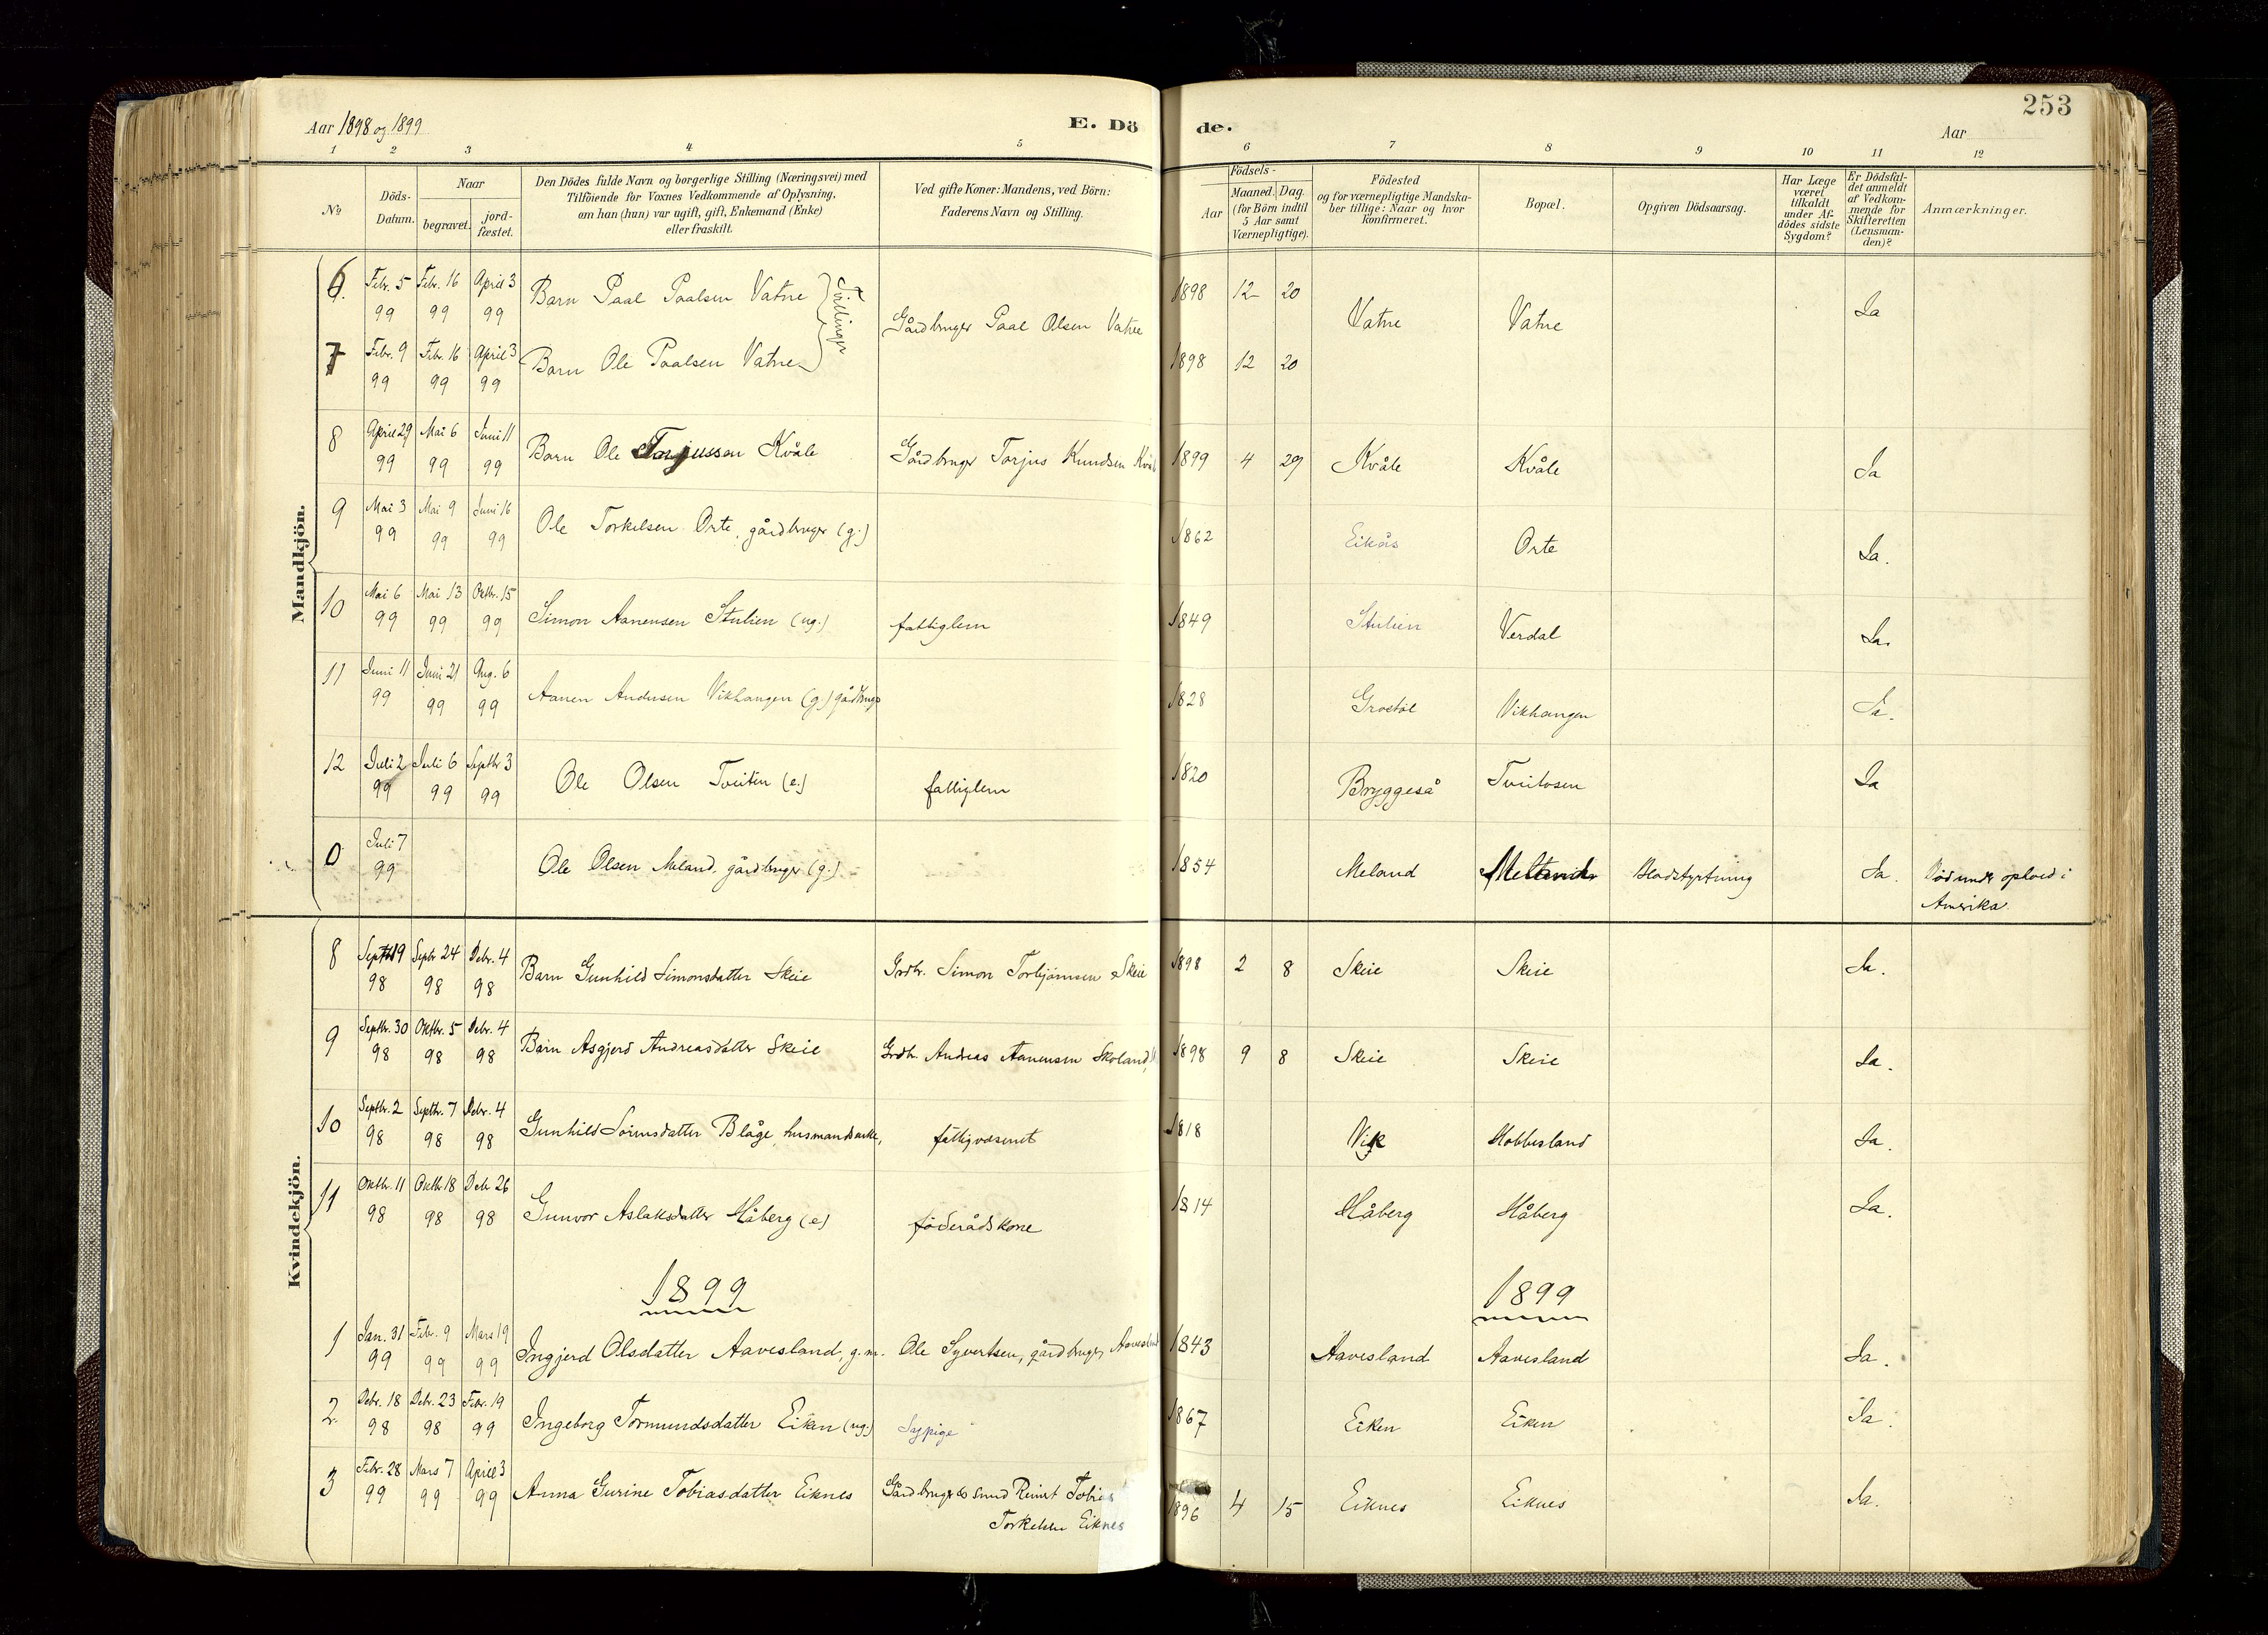 253
Aar 1898 og 1899
E. Dö de.
Aar
1 2 3 4 5 6 7 8 9 10 11 12
No
Döds-Datum.
Naar
begravet.
jord-fæstet.
Den Dödes fulde Navn og borgerlige Stilling (Næringsvei) med
Tilföiende for Voxnes Vedkommende af Oplysning,
om han (hun) var ugift, gift, Enkemand (Enke)
eller fraskilt.
Ved gifte Koner: Mandens, ved Börn:
Faderens Navn og Stilling.
Födsels-
Aar
Maaned. Dag.
(for Börn indtil
5 Aar samt
Værnepligtige).
Födested
og for værnepligtige Mandska-
ber tillige: Naar og hvor
konfirmeret.
Bopæl.
Opgiven Dödsaarsag.
Har Læge
været
tilkaldt
under Af-
dödes sidste
Sygdom?
Er Dödsfal-
det anmeldt
af Vedkom-
mende for
Skifteretten
(Lensman-
den)?
Anmærkninger.
Mandkjön.
6. Febr. 5 99 Febr. 16 99 April 3 99 Barn Paal Paalsen Vatne Tvillinger Gårdbruger Paal Olsen Vatne 1898 12 20 Vatne Vatne Ja
7 Febr. 9 99 Febr. 16 99 April 3 99 Barn Ole Paalsen Vatne 1898 12 20
8 April 29 99 Mai 6 99 Juni 11 99 Barn Ole Torjussen Kvåle Gårdbruger Torjus Knudsen 1899 4 29 Kvåle Kvåle Ja
9 Mai 3 99 Mai 9 99 Juni 16 99 Ole Torkelsen Orte, gårdbruger (g.) 1862 Eikås Orte Ja.
10 Mai 6 99 Mai 13 99 Oktbr. 15 99 Simon Aanensen Stulien (ug.) fattiglem 1849 Stulien Verdal Ja.
11 Juni 11 99 Juni 21 99 Aug. 6 99 Aanen Andersen Vikhangen (g.) gårdbruger 1828 Grostøl Vikhangen Ja.
12 Juli 2 99 Juli 6 99 Septbr 3 99 Ole Olsen Tveiten (e.) fattiglem 1820 Bryggeså Tveitosen Ja
0 Juli 7 99 Ole Olsen Meland, gårdbruger (g.) 1854 Meland Blodstyrtning Ja. Död under ophold i
Amerika.
Kvindekjön.
8 Septbr 19 98 Septbr 24 98 Debr. 4 98 Barn Gunhild Simonsdatter Skeie Grdbr. Simon Torbjörnsen Skeie 1898 2 8 Skeie Skeie Ja.
9 Septbr. 30 98 Oktbr. 5 98 Debr. 4 98 Barn Asgjerd Andreasdatter Skeie Grdbr. Andreas Aanensen Skoland 1898 9 8 Skeie Skeie Ja.
10 Septbr. 2 98 Septbr. 7 98 Debr. 4 98 Gunhild Sörensdatter Blåge, husmandsenke, fattigvæsenet 1818 Vik Hobbesland Ja.
11 Oktbr. 11 98 Oktbr 18 98 Debr 26 98 Gunvor Aslaksdatter Håberg (e) föderådskone 1814 Håberg Håberg Ja.
1899 1899
1 Jan. 31 99 Febr. 9 99 Mars 19 99 Ingjerd Olsdatter Aavesland, g. m. Ole Syvertsen, gårdbruger, Aavesland 1843 Aavesland Aavesland Ja.
2. Debr. 18 98 Debr. 23 98 Febr. 19 99 Ingeborg Tormundsdatter Eiken (ug.) Sypige 1867 Eiken Eiken Ja.
3 Febr. 28 99 Mars 7 99 April 3 99 Anna Gurine Tobiasdatter Eiknes Gårdbruger & smed Reinert Tobias
Torkelsen Eiknes 1896 4 15 Eiknes Eiknes Ja.